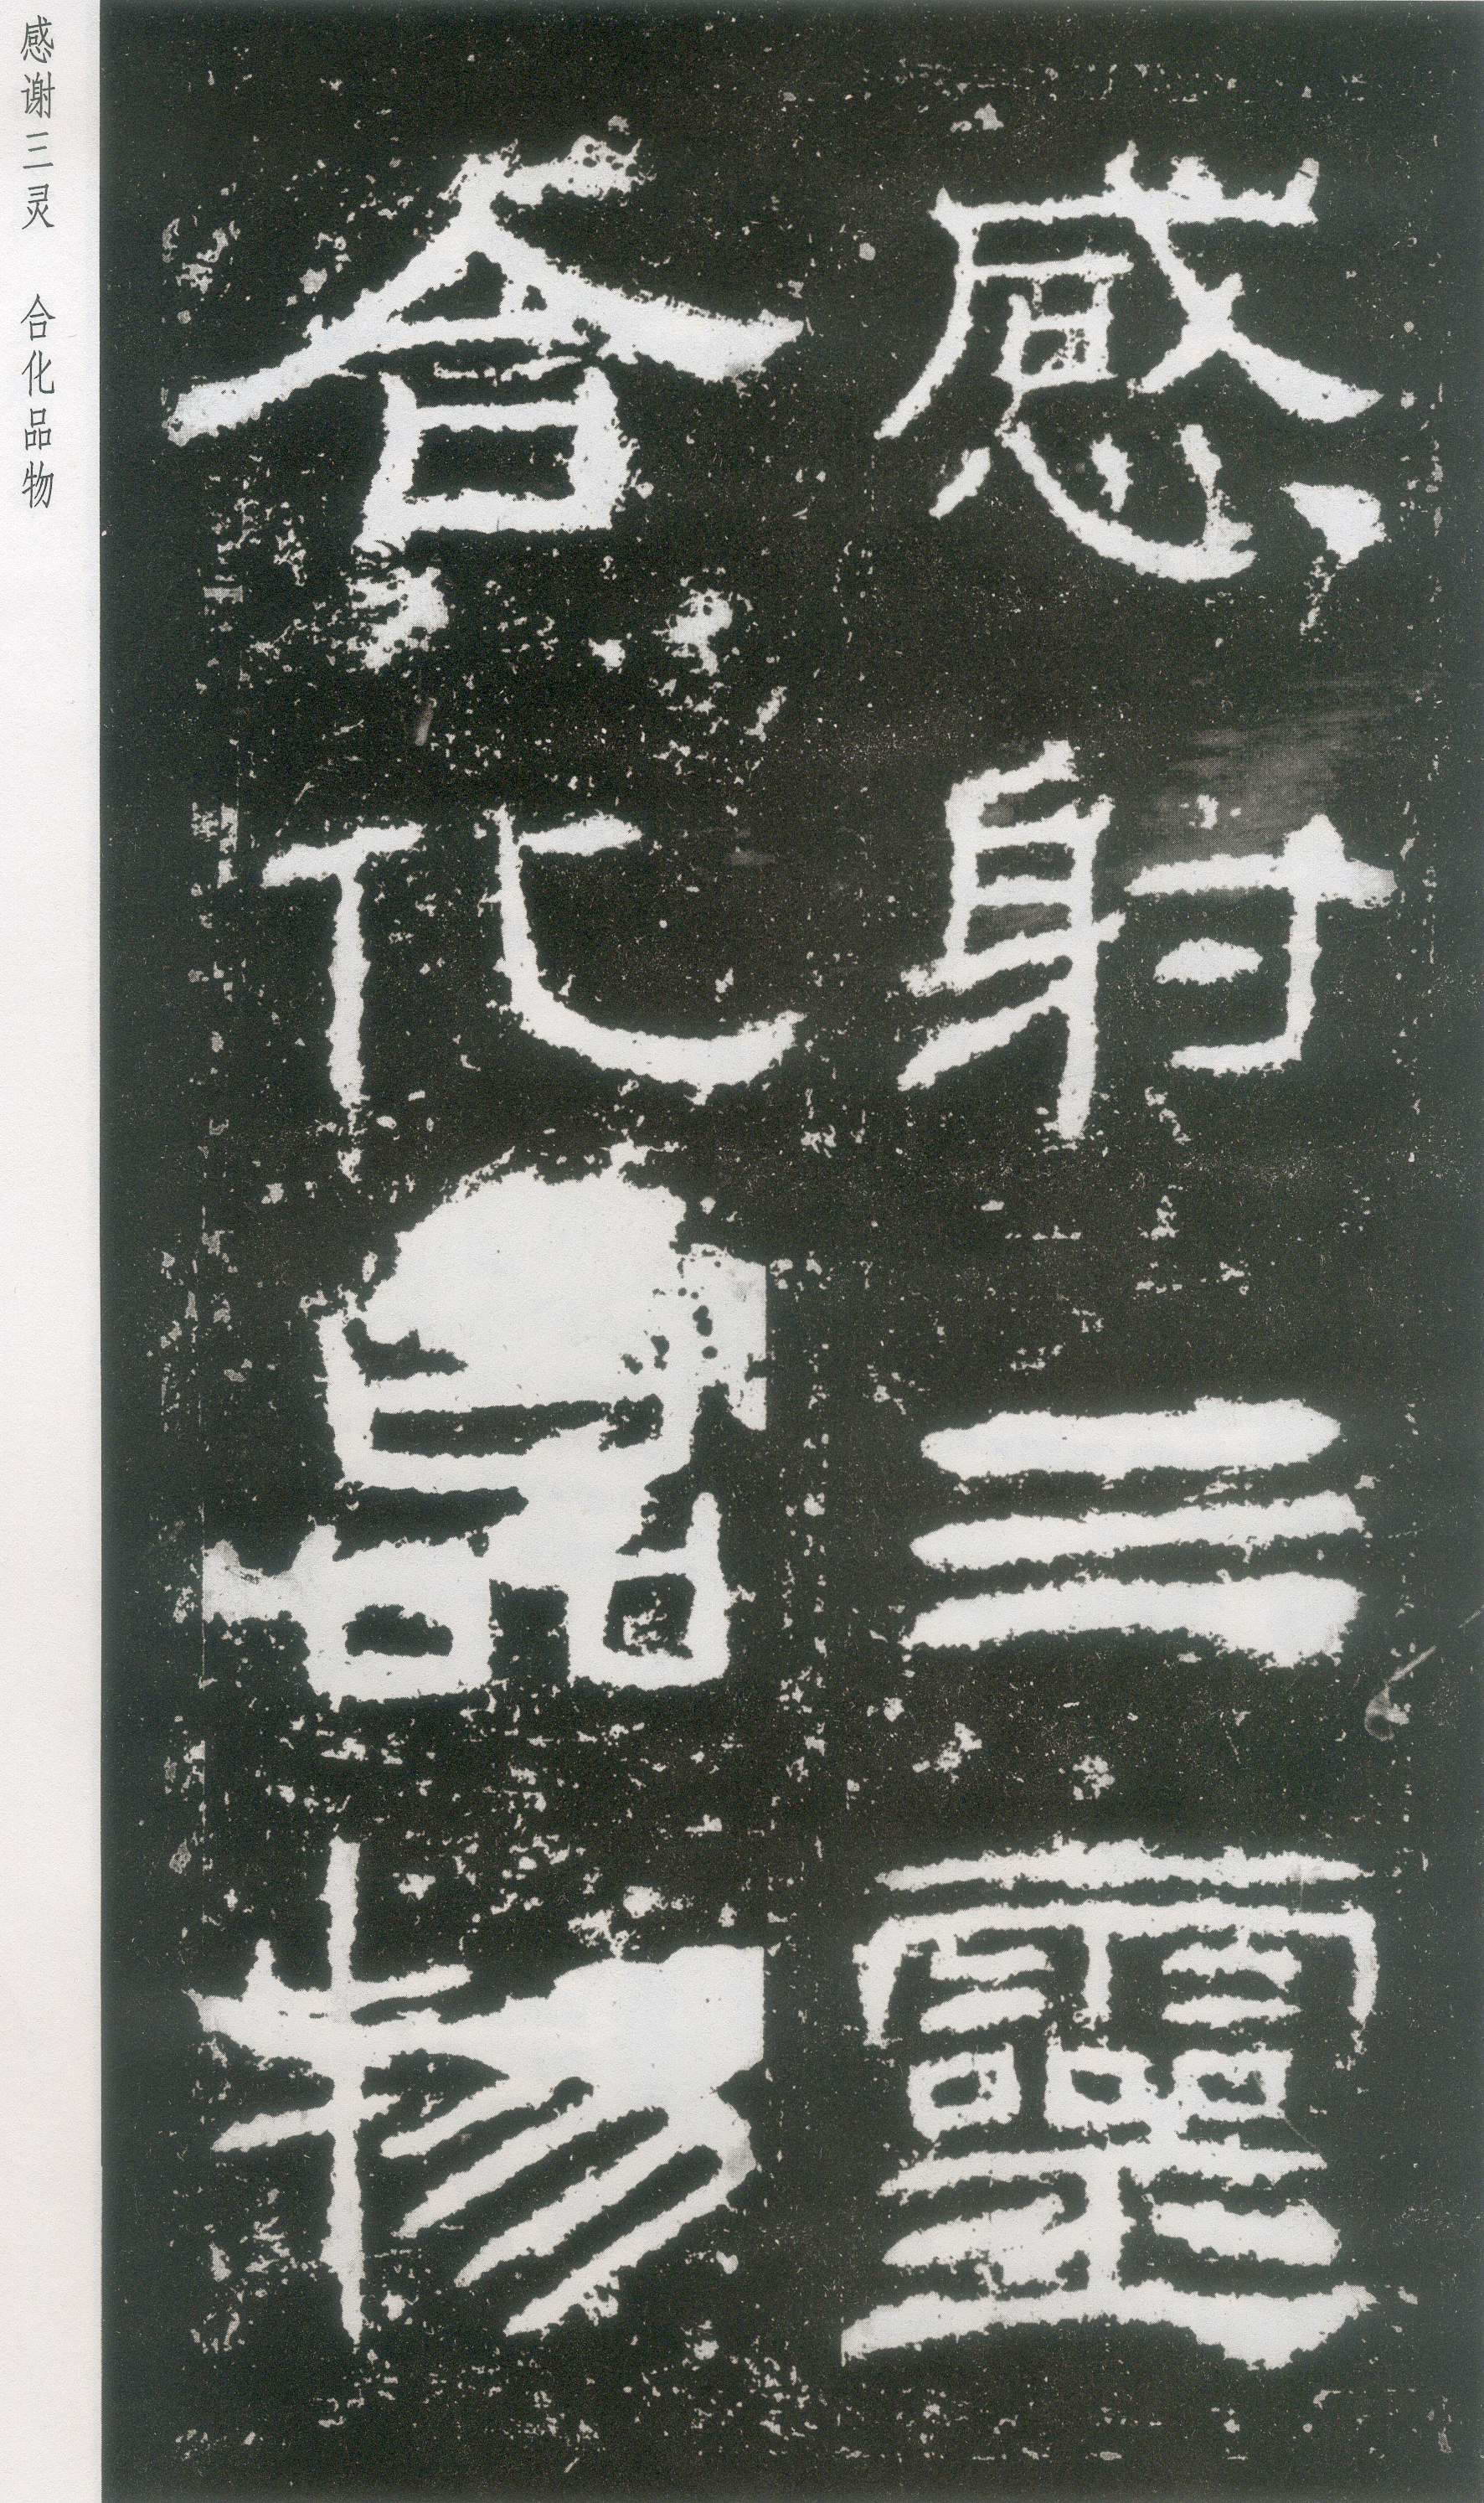 感射三靈
合化品物
感谢三灵 合化品物